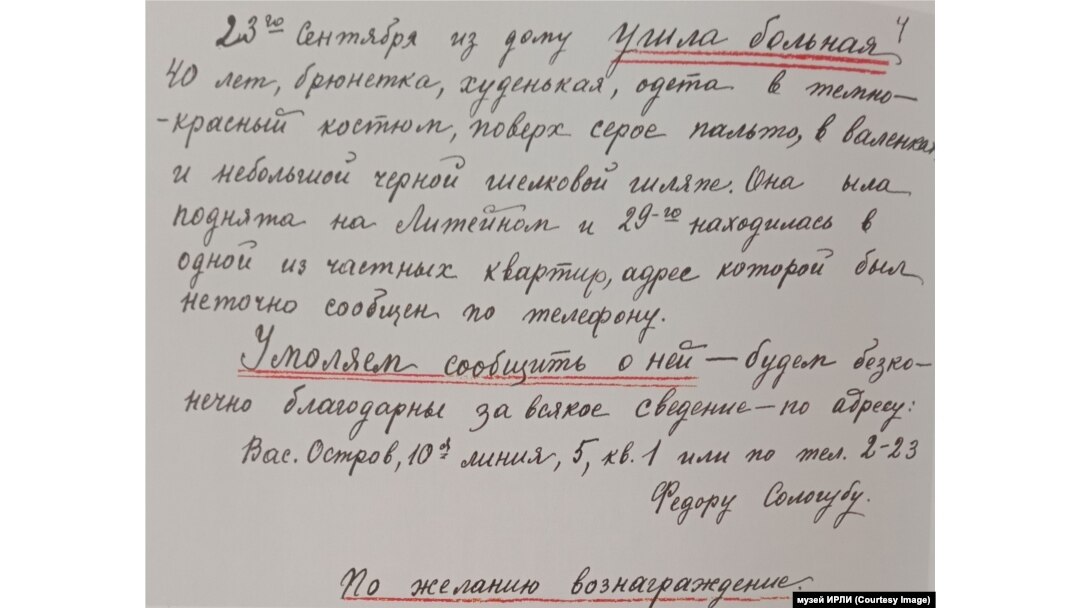 23го Сентября из дому ушла больная 4
40 лет, брюнетка, худенькая, одета в темно-
-красный костюм, поверх серое пальто, в валенках
и небольшой черной шелковой шляпе. Она была
поднята на Литейном и 29-го находилась в
одной из частных квартир, адрес которой был
неточно сообщен по телефону.
Умоляем сообщить о ней — будем безко-
нечно благодарны за всякое сведение — по адресу:
Вас. Остров, 10я линия, 5, кв. 1 или по тел. 2-23
Федору Сологубу.
По желанию вознаграждение.
музей ИРЛИ (Courtesy Image)